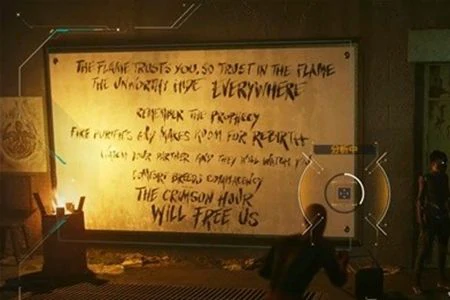 THE FLAME TRUSTS YOU, SO TRUST IN THE FLAME
THE UNWORTHY HIDE EVERYWHERE
REMEMBER THE PROPHECY
FIRE PURIFIES MAKES ROOM FOR REBIRTH
WATCH YOUR PARTNER AND THEY WILL WATCH
COMFORT BREEDS COMPLACENCY
THE CRIMSON HOUR
WILL FREE US
分析中